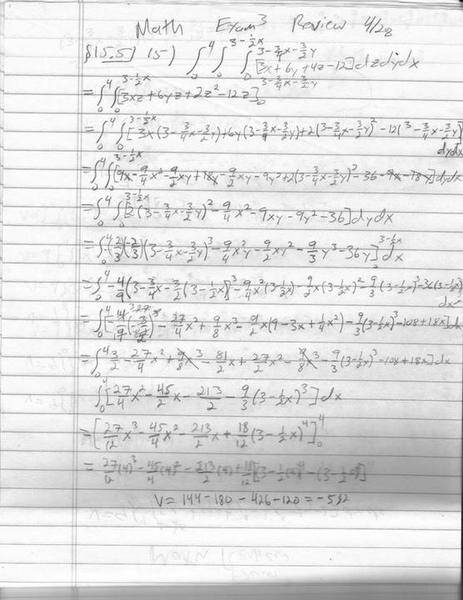 Math Exam 3 Review 4/28
§15.5) 15) ∫₀⁴ ∫₀^(3-½x) ∫₀^(3-¾x-3/2y) [3x+6y+4z-12] dzdydx
= ∫₀⁴ ∫₀^(3-½x) [3xz+6yz+2z²-12z]₀^(3-¾x-3/2y)
= ∫₀⁴ ∫₀^(3-½x) [3x(3-¾x-3/2y)+6y(3-¾x-3/2y)+2(3-¾x-3/2y)²-12(3-¾x-3/2y)] dydx
= ∫₀⁴ ∫₀^(3-½x) [9x-9/4x²-9/2xy+18y-9/2xy-9y²+2(3-¾x-3/2y)²-36-9x-18y] dydx
= ∫₀⁴ ∫₀^(3-½x) [2(3-¾x-3/2y)²-9/4x²-9xy-9y²-36] dydx
= ∫₀⁴ (2/3)(-2/3)(3-¾x-3/2y)³-9/4x²y-9/2xy²-9/3y³-36y]^(3-½x) dx
= ∫₀⁴ -4/9(3-¾x-3/2(3-½x))³-9/4x²(3-½x)-9/2x(3-½x)²-9/3(3-½x)³-36(3-½x) dx
-27/4x²+9/8x³-9/2x(9-3x+¼x²)-9/3(3-½x)³-108+18x] dx
= ∫₀⁴ 3/2-27/4x²+9/8x³-81/2x+27/2x²-9/8x³-9/3(3-½x)³-108+18x] dx
∫₀⁴ [27/4x²-45/2x-213/2-9/3(3-½x)³] dx
= [27/12x³-45/4x²-213/2x+18/12(3-½x)⁴]₀⁴
= 27/12(4)³-45/4(4)²-213/2(4)+18/12
V = 144-180-426-120 = -592